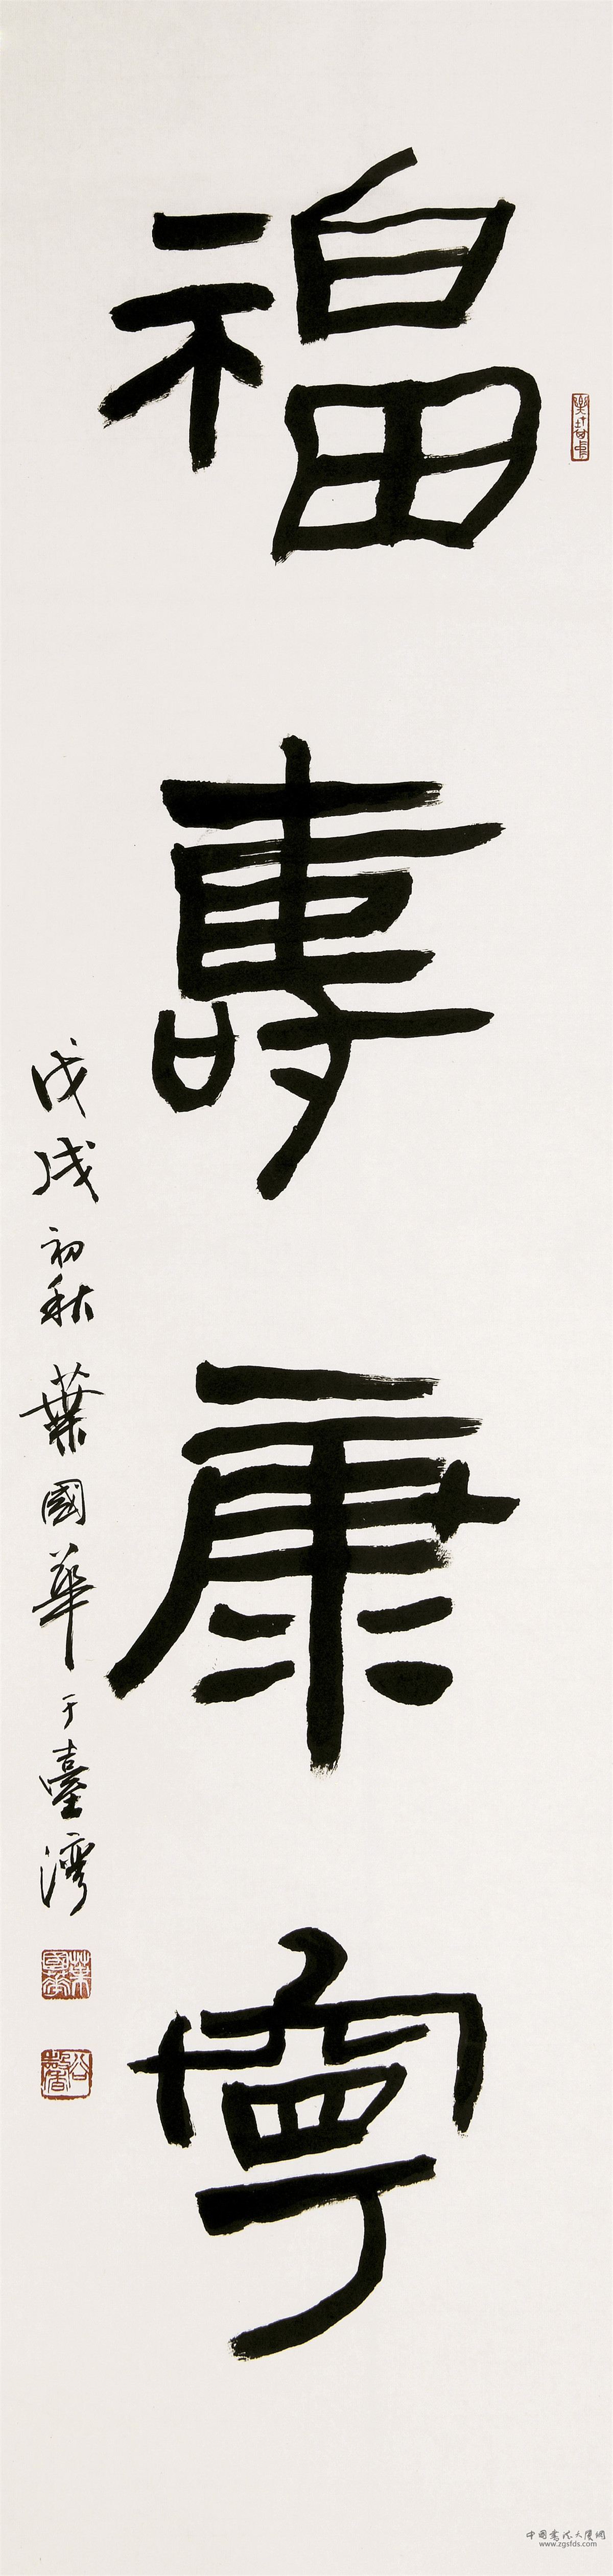 福壽康寧
戊戌初秋葉國華于臺灣
葉國華
中国书法大厦網
www.zgsfds.com